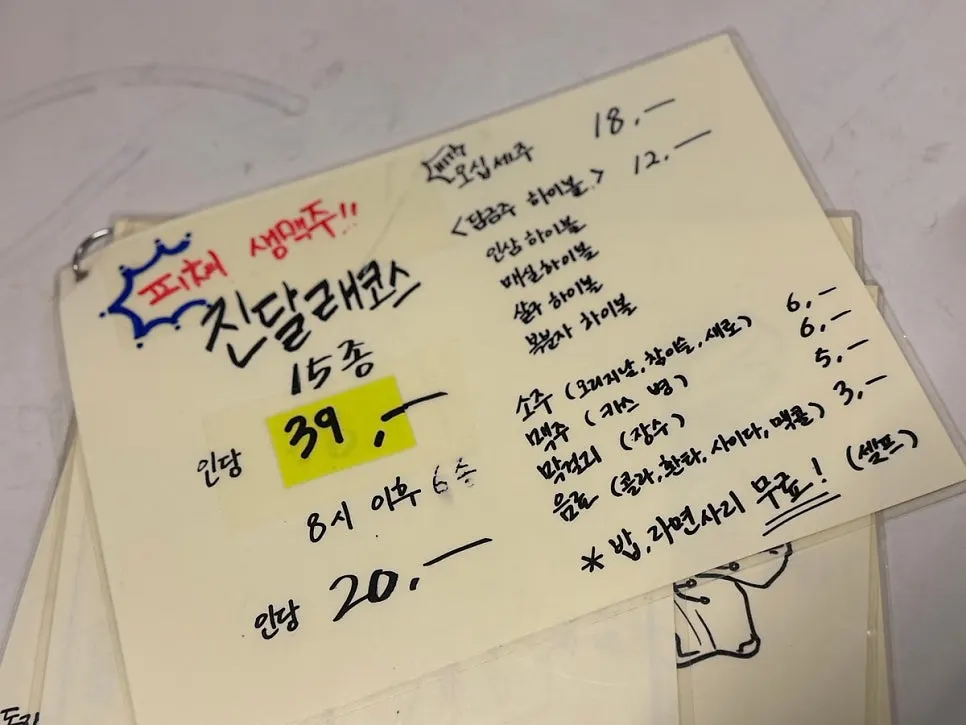 피쳐 생맥주!!
진달래코스
15종
인당 39,-
8시 이후 6종
인당 20.-
오십세주 18.-
<담금주 하이볼> 12.-
인삼 하이볼
매실 하이볼
살구 하이볼
복분자 하이볼
소주 (오리지날, 참이슬, 새로) 6.-
맥주 (카스 병) 6.-
막걸리 (장수) 5.-
음료 (콜라, 환타, 사이다, 맥콜) 3,-
* 밥, 라면사리 무료! (셀프)